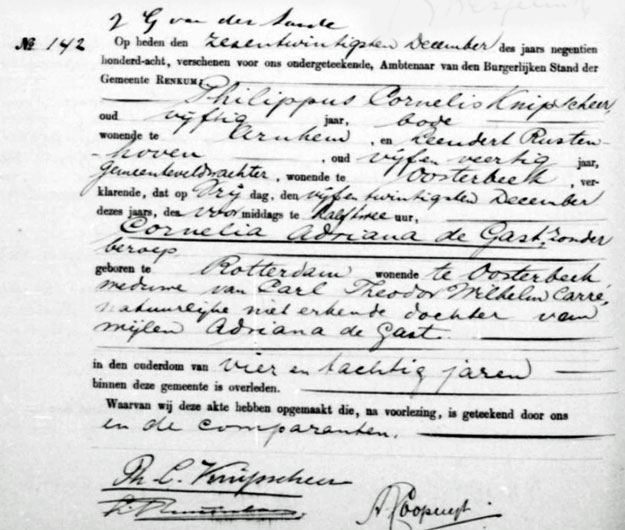 J G van der Sande
№ 142
Op heden den zesentwintigsten December des jaars negentien
honderd-acht, verschenen voor ons ondergeteekende, Ambtenaar van den Burgerlijken Stand der
Gemeente RENKUM:
Philippus Cornelis Knipscheer,
oud vijftig jaar, bode
wonende te Arnhem, en Leendert Rusten-
hoven, oud vijfenveertig jaar,
gemeenteveldwachter, wonende te Oosterbeek, ver-
klarende, dat op Vrijdag, den vijfentwintigsten December
dezes jaars, des voormiddags te halftwee uur,
Cornelia Adriana de Gast, zonder
beroep
geboren te Rotterdam wonende te Oosterbeek
weduwe van Carl Theodor Wilhelm Carré,
natuurlijke niet erkende dochter van
wijlen Adriana de Gast.
in den ouderdom van vier en tachtig jaren
binnen deze gemeente is overleden.
Waarvan wij deze akte hebben opgemaakt die, na voorlezing, is geteekend door ons
en de comparanten.
Ph. C. Knipscheer